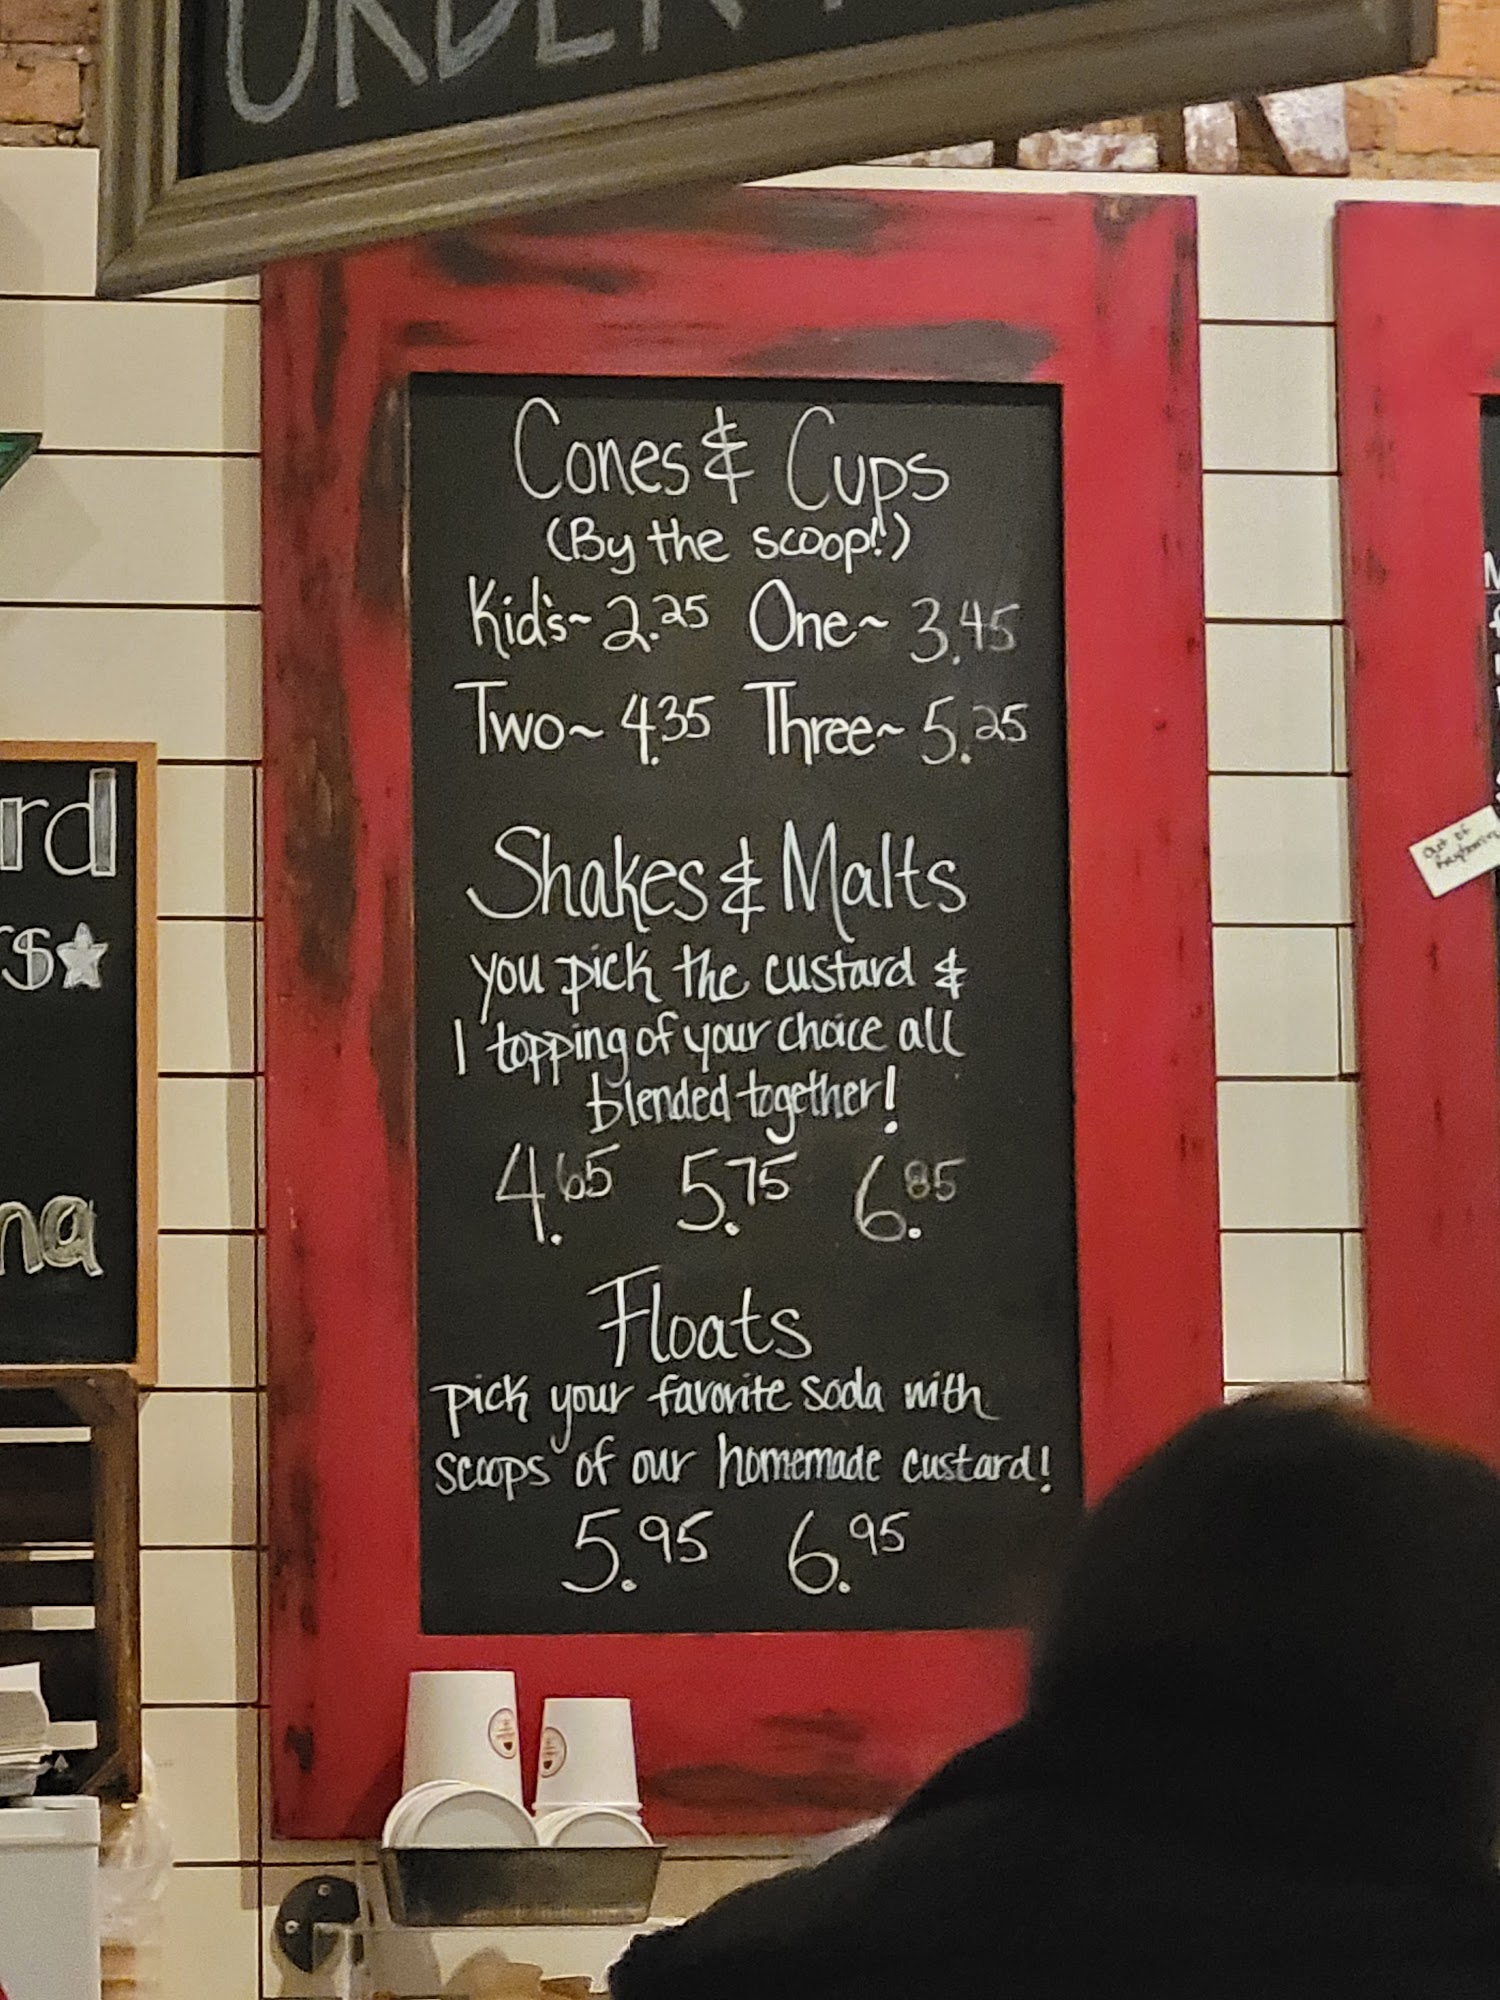 ORDER
Cones & Cups
(By the scoop!)
Kid's~ 2.25 One~ 3.45
Two~ 4.35 Three~ 5.25
Shakes & Malts
you pick the custard &
1 topping of your choice all
blended together!
4.65 5.75 6.85
Floats
pick your favorite soda with
scoops of our homemade custard!
5.95 6.95
rd
rs
na
Out of